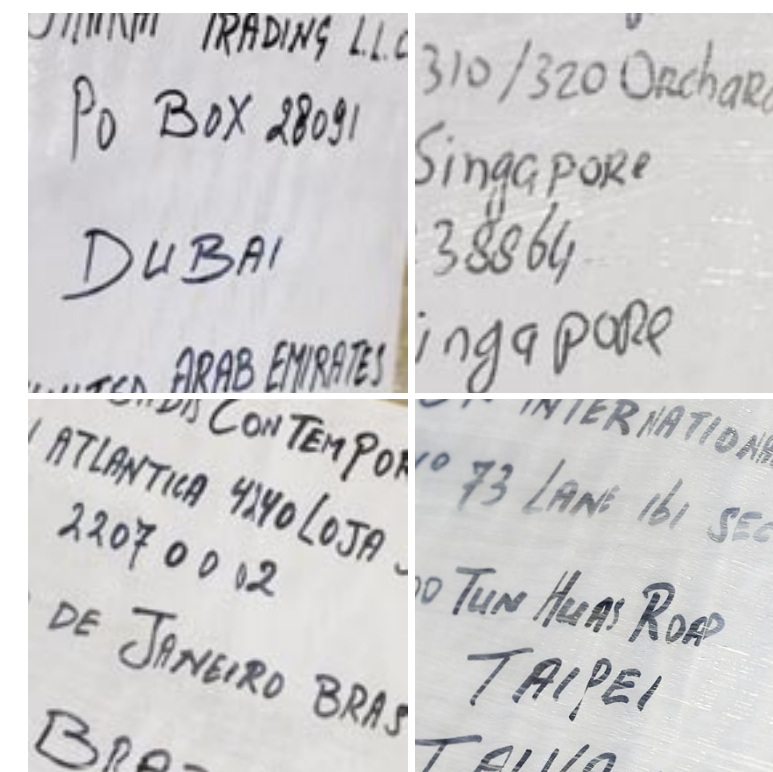 TRADING L.L.C
PO BOX 28091
DUBAI
ARAB EMIRATES
310/320 Orchard
Singapore
38864
ingapore
CONTEMPOR
ATLANTICA 4240 LOJA
2207 0 0 02
DE JANEIRO BRAS
BRAZ
INTERNATIONA
No 73 LANE 161 SEC
TUN HUAS ROAD
TAIPEI
TAIWA